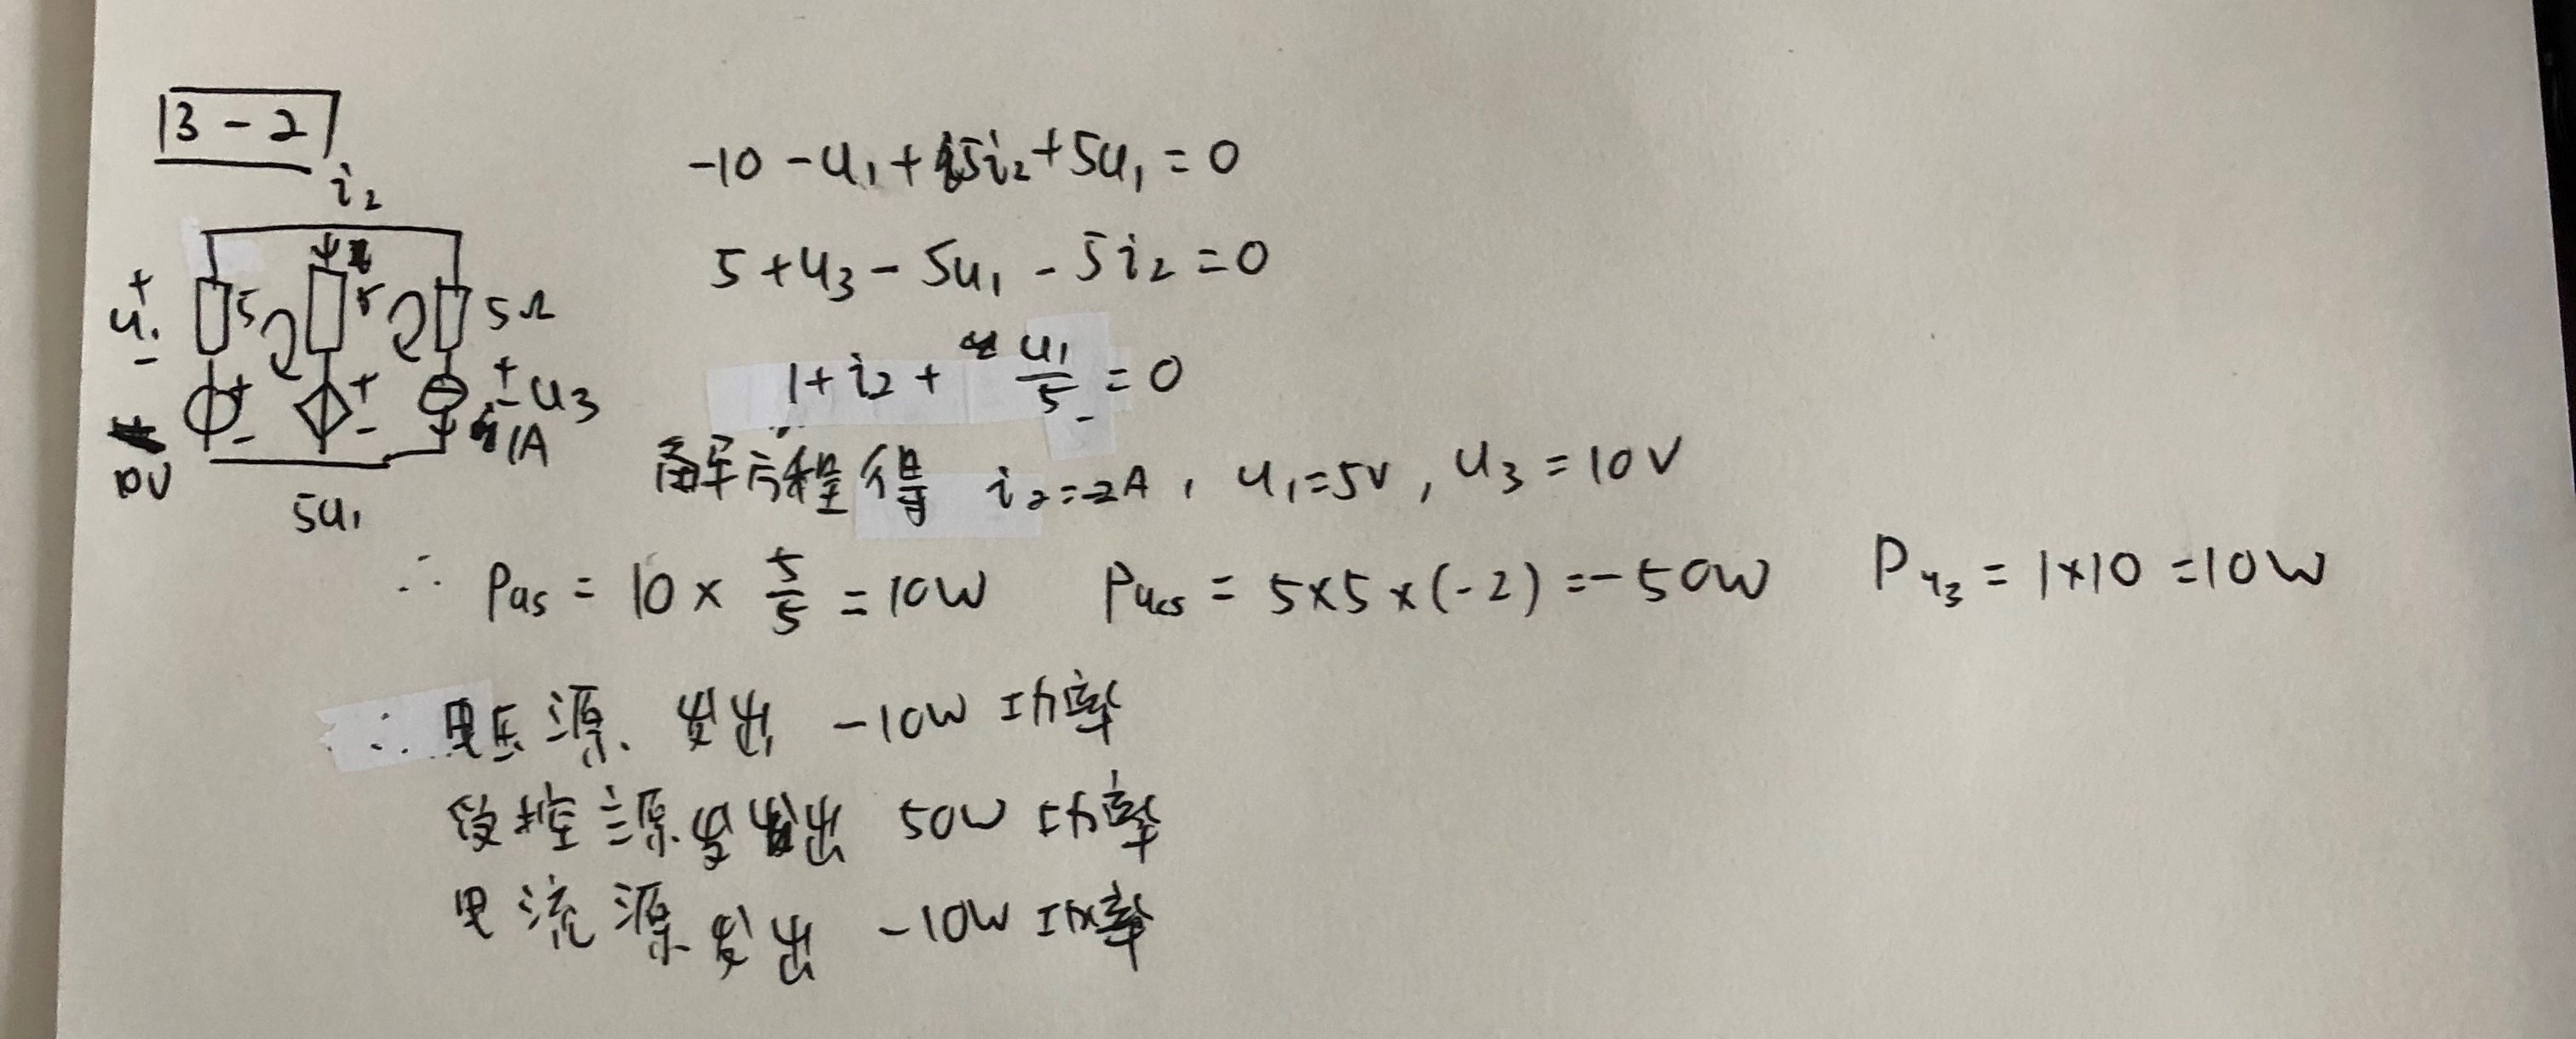 3-2
i₂
-10 - u₁ + 5i₂ + 5u₁ = 0
5 + u₃ - 5u₁ - 5i₂ = 0
+ u₁ - 5 5 5Ω
+ - + - + - u₃
10V 1A
5u₁
1 + i₂ + u₁/5 = 0
解方程得 i₂=-2A, u₁=5V, u₃=10V
∴ Pus = 10 × 5/5 = 10W Pucs = 5×5×(-2) = -50W Pu₃ = 1×10 = 10W
∴ 电压源 发出 -10W 功率
受控源发出 50W 功率
电流源发出 -10W 功率